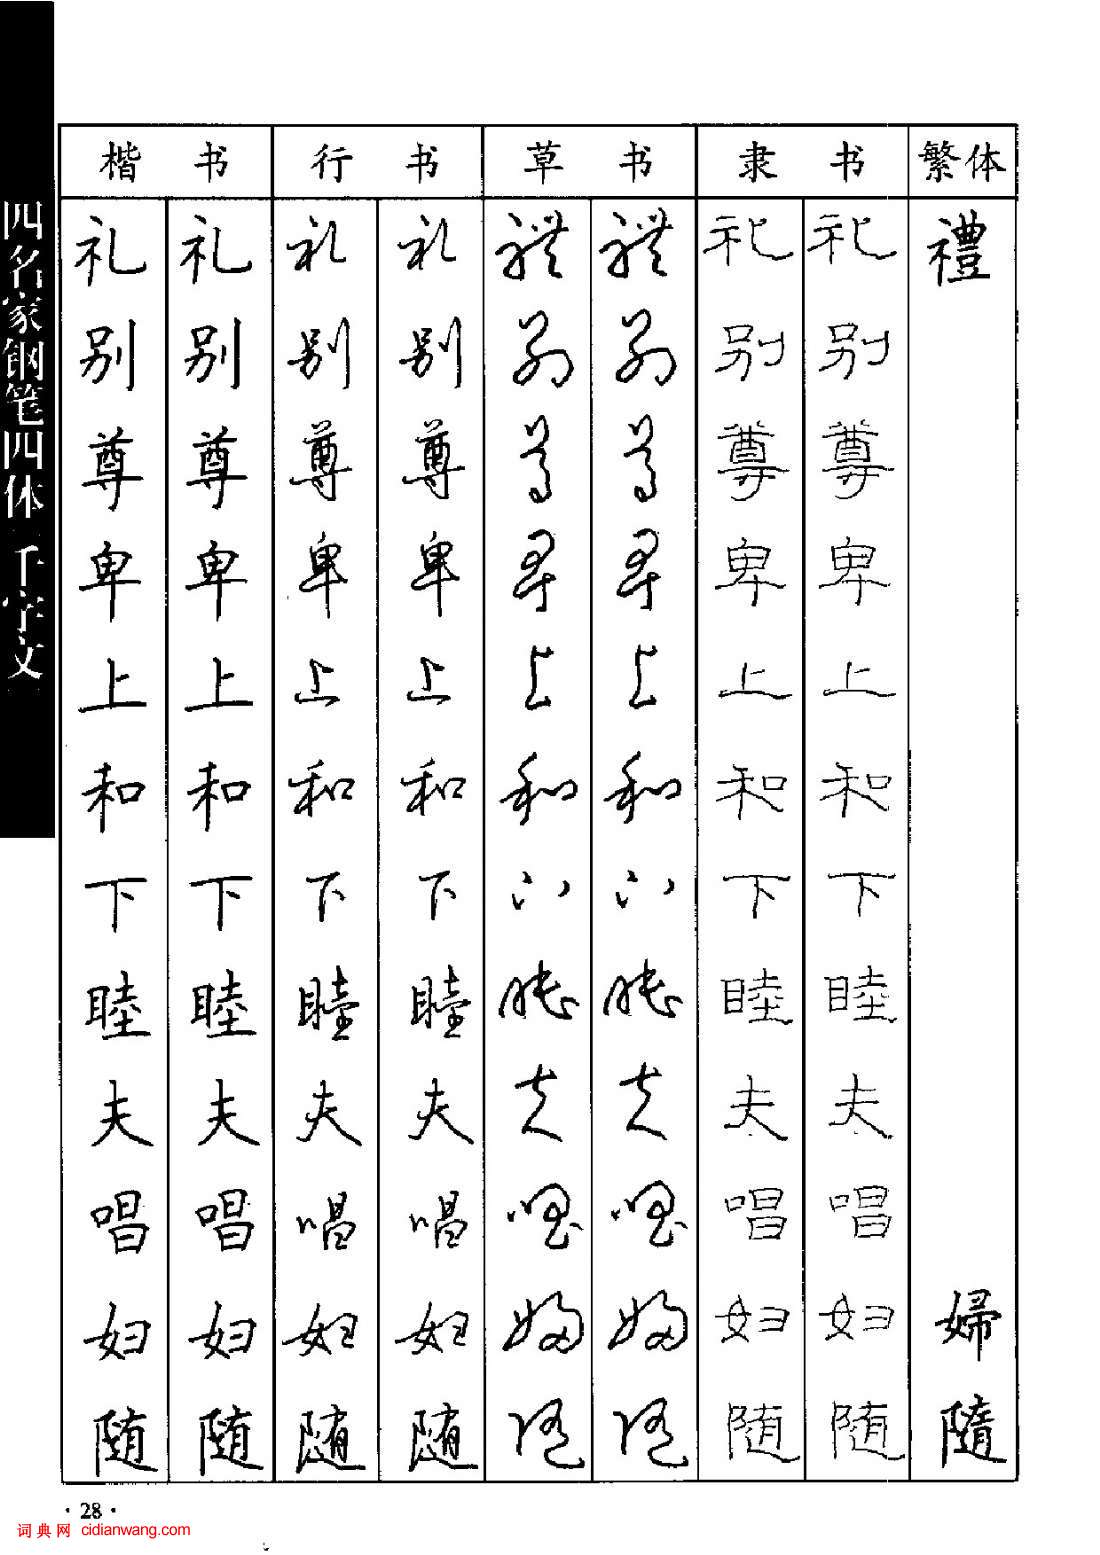 四名家钢笔四体千字文
楷书 行书 草书 隶书 繁体
礼 礼 礼 礼 礼 礼 礼 礼 禮
别 别 别 别 别 别 别 别
尊 尊 尊 尊 尊 尊 尊 尊
卑 卑 卑 卑 卑 卑 卑 卑
上 上 上 上 上 上 上 上
和 和 和 和 和 和 和 和
下 下 下 下 下 下 下 下
睦 睦 睦 睦 睦 睦 睦 睦
夫 夫 夫 夫 夫 夫 夫 夫
唱 唱 唱 唱 唱 唱 唱 唱
妇 妇 妇 妇 婦 婦 妇 妇 婦
随 随 随 随 随 随 随 随 隨
·28·
词典网 cidianwang.com